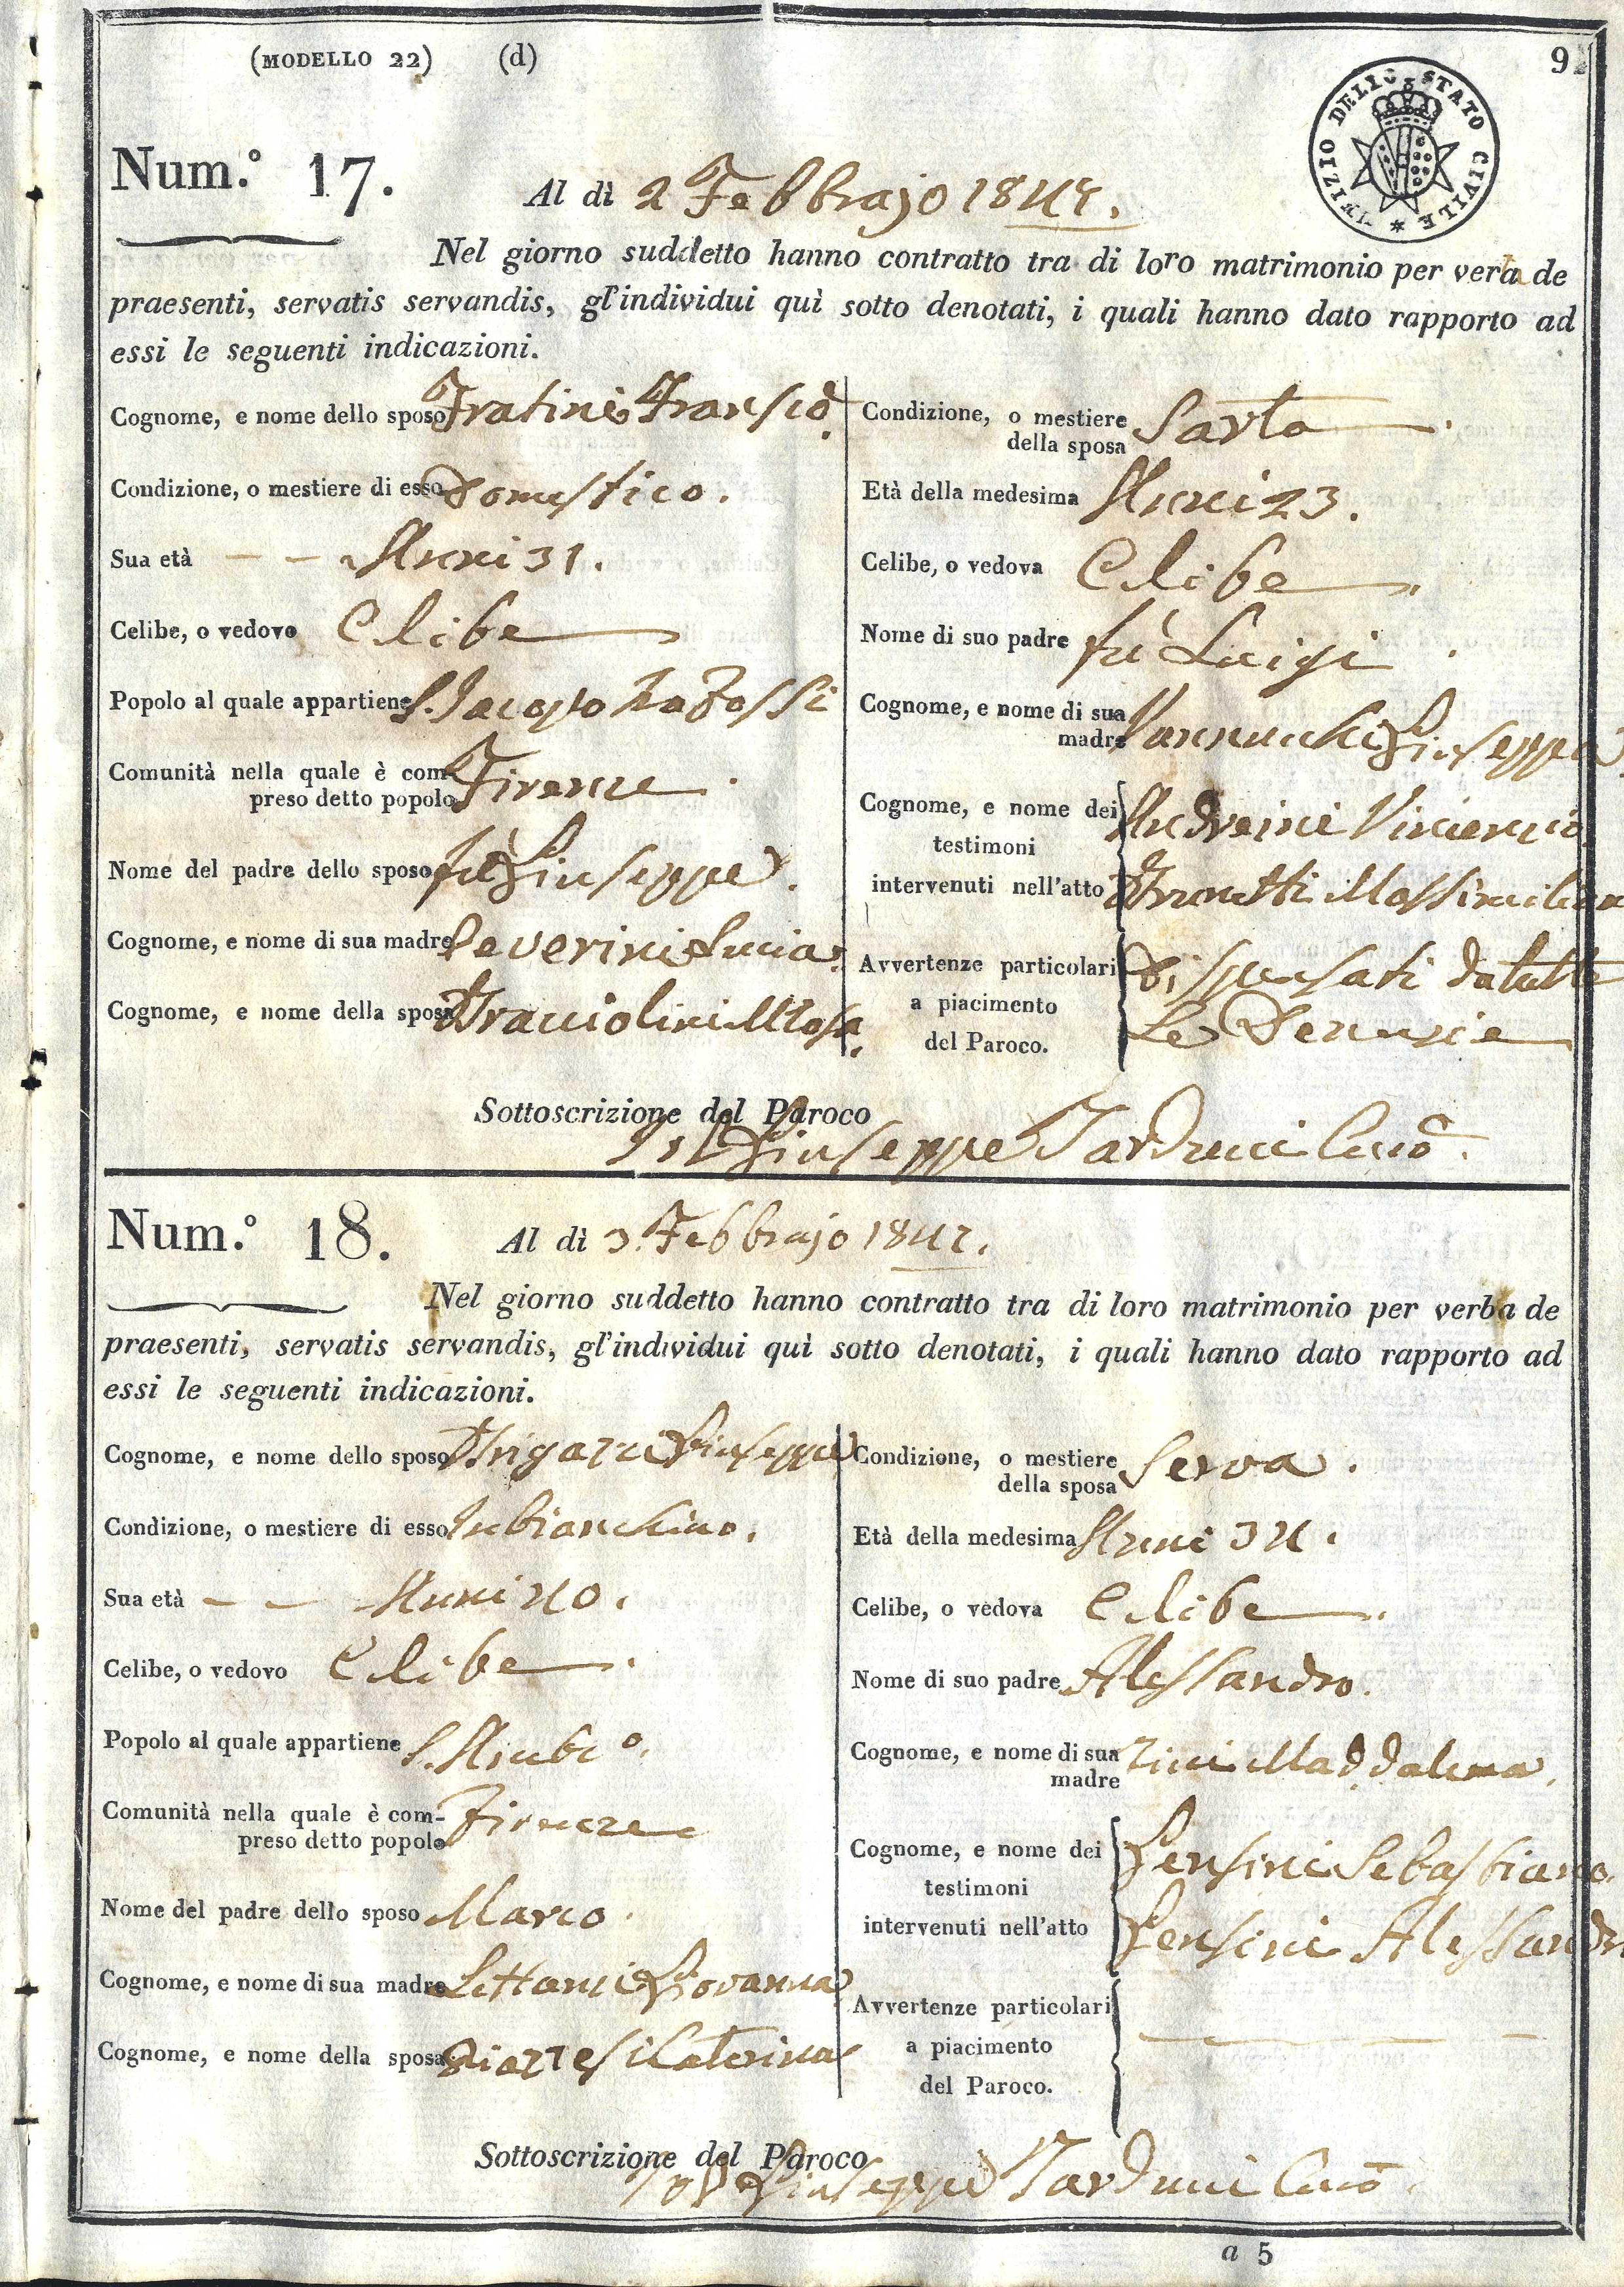 (MODELLO 22) (d) 9
UFIZIO DELLO STATO CIVILE
Num.° 17.
Al dì 2 Febbrajo 184
Nel giorno suddetto hanno contratto tra di loro matrimonio per verba de
praesenti, servatis servandis, gl'individui quì sotto denotati, i quali hanno dato rapporto ad
essi le seguenti indicazioni.
Cognome, e nome dello sposo Fratini Fransco.
Condizione, o mestiere di esso Domestico.
Sua età Anni 31.
Celibe, o vedovo Celibe
Popolo al quale appartiene S. Jacopo tra Fossi
Comunità nella quale è com-
preso detto popolo Firenze.
Nome del padre dello sposo fù Giuseppe.
Cognome, e nome di sua madre Severini Lucia.
Cognome, e nome della sposa Bracciolini Rosa.
Condizione, o mestiere
della sposa Sarta.
Età della medesima Anni 23.
Celibe, o vedova Celibe
Nome di suo padre fù Luigi.
Cognome, e nome di sua
madre Vannucchi Giuseppa
Cognome, e nome dei
testimoni
intervenuti nell'atto
Andreini Vincenzio
Massimilian
Avvertenze particolari
a piacimento
del Paroco.
Dispensati da tutte
Le Denunzie
Sottoscrizione del Paroco
Giuseppe Tarducci
Num.° 18.
Al dì 3. Febbrajo 184
Nel giorno suddetto hanno contratto tra di loro matrimonio per verba de
praesenti, servatis servandis, gl'individui quì sotto denotati, i quali hanno dato rapporto ad
essi le seguenti indicazioni.
Cognome, e nome dello sposo Brigazzi Giuseppe
Condizione, o mestiere di esso Inbianchino.
Sua età Anni 40.
Celibe, o vedovo Celibe.
Popolo al quale appartiene S. Amb°.
Comunità nella quale è com-
preso detto popolo Firenze
Nome del padre dello sposo Marco.
Cognome, e nome di sua madre Giovanna
Cognome, e nome della sposa Piazzesi Caterina
Condizione, o mestiere
della sposa Serva.
Età della medesima Anni 34.
Celibe, o vedova Celibe.
Nome di suo padre Alessandro.
Cognome, e nome di sua
madre Zini Maddalena.
Cognome, e nome dei
testimoni
intervenuti nell'atto
Gensini Sebastiano.
Gensini Alessandr
Avvertenze particolari
a piacimento
del Paroco.
Sottoscrizione del Paroco
Giuseppe Tarducci
a 5